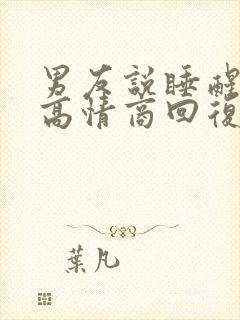 男友說睡醒
高情商回復
葉凡